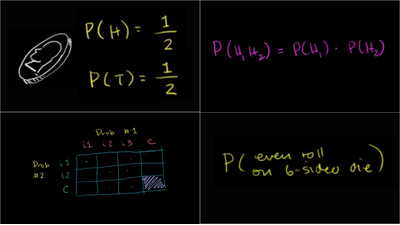 P(H) = 1/2
P(T) = 1/2
P(H₁H₂) = P(H₁) · P(H₂)
Prob #1
i1 i2 i3 C
Prob i1
#2 i2
C
P(even roll
on 6-sided die)